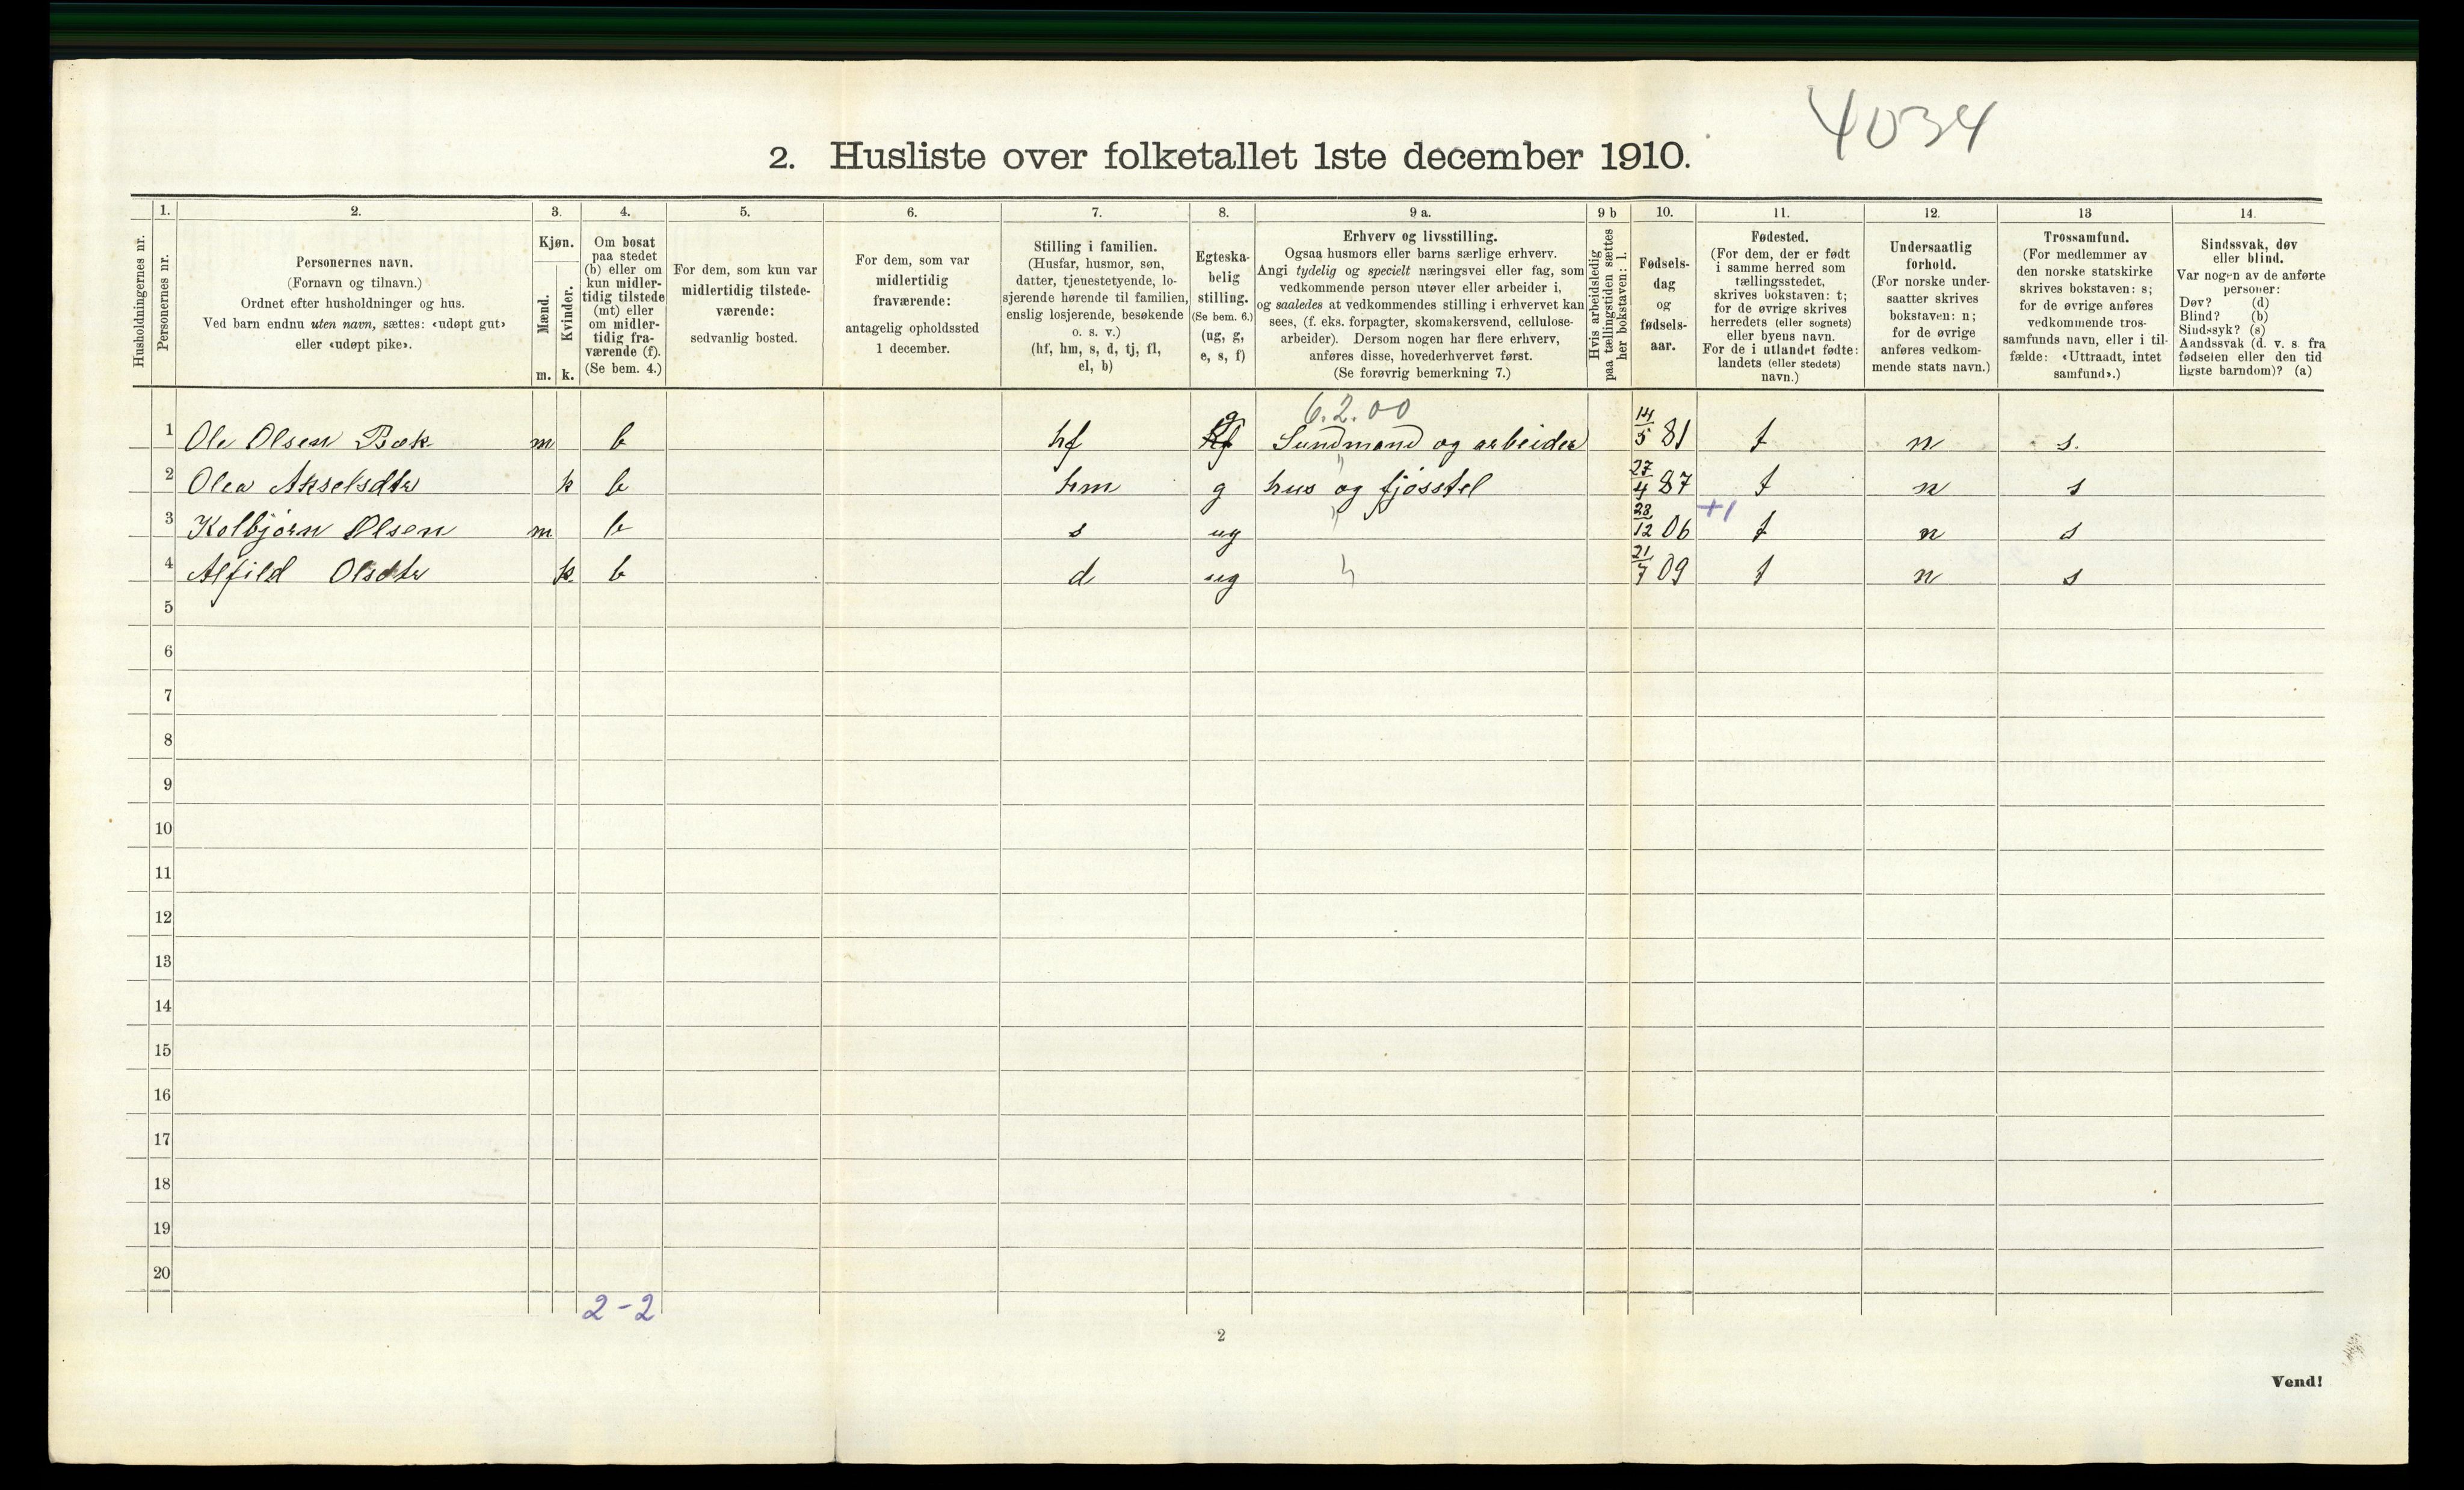 4034
2. Husliste over folketallet 1ste december 1910.
Husholdningernes nr.
1.
Personernes nr.
2.
Personernes navn.
(Fornavn og tilnavn.)
Ordnet efter husholdninger og hus.
Ved barn endnu uten navn, sættes: «udøpt gut»
eller «udøpt pike».
3.
Kjøn.
Mænd.
Kvinder.
m. k.
4.
Om bosat
paa stedet
(b) eller om
kun midler-
tidig tilstede
(mt) eller
om midler-
tidig fra-
værende (f).
(Se bem. 4.)
5.
For dem, som kun var
midlertidig tilstede-
værende:
sedvanlig bosted.
6.
For dem, som var
midlertidig
fraværende:
antagelig opholdssted
1 december.
7.
Stilling i familien.
(Husfar, husmor, søn,
datter, tjenestetyende, lo-
sjerende hørende til familien,
enslig losjerende, besøkende
o. s. v.)
(hf, hm, s, d, tj, fl,
el, b)
8.
Egteska-
belig
stilling.
(Se bem. 6.)
(ug, g,
e, s, f)
9 a.
Erhverv og livsstilling.
Ogsaa husmors eller barns særlige erhverv.
Angi tydelig og specielt næringsvei eller fag, som
vedkommende person utøver eller arbeider i,
og saaledes at vedkommendes stilling i erhvervet kan
sees, (f. eks. forpagter, skomakersvend, cellulose-
arbeider). Dersom nogen har flere erhverv,
anføres disse, hovederhvervet først.
(Se forøvrig bemerkning 7.)
9 b
Hvis arbeidsledig
paa tællingstiden sættes
her bokstaven: l.
10.
Fødsels-
dag
og
fødsels-
aar.
11.
Fødested.
(For dem, der er født
i samme herred som
tællingsstedet,
skrives bokstaven: t;
for de øvrige skrives
herredets (eller sognets)
eller byens navn.
For de i utlandet fødte:
landets (eller stedets)
navn.)
12.
Undersaatlig
forhold.
(For norske under-
saatter skrives
bokstaven: n;
for de øvrige
anføres vedkom-
mende stats navn.)
13
Trossamfund.
(For medlemmer av
den norske statskirke
skrives bokstaven: s;
for de øvrige anføres
vedkommende tros-
samfunds navn, eller i til-
fælde: «Uttraadt, intet
samfund».)
14.
Sindssvak, døv
eller blind.
Var nogen av de anførte
personer:
Døv? (d)
Blind? (b)
Sindssyk? (s)
Aandssvak (d. v. s. fra
fødselen eller den tid
ligste barndom)? (a)
6.2.00
1 Ole Olsen Bæk m b hf g Sundmand og arbeider 14/5 81 t n s.
2 Olea Akselsdtr k b hm g hus og fjøsstel 27/4 87 t n s
3 Kolbjørn Olsen m b s ug 28/12 06 +1 t n s
4 Alfild Olsdtr k b d ug 21/7 09 t n s
5
6
7
8
9
10
11
12
13
14
15
16
17
18
19
20
2-2
2
Vend!